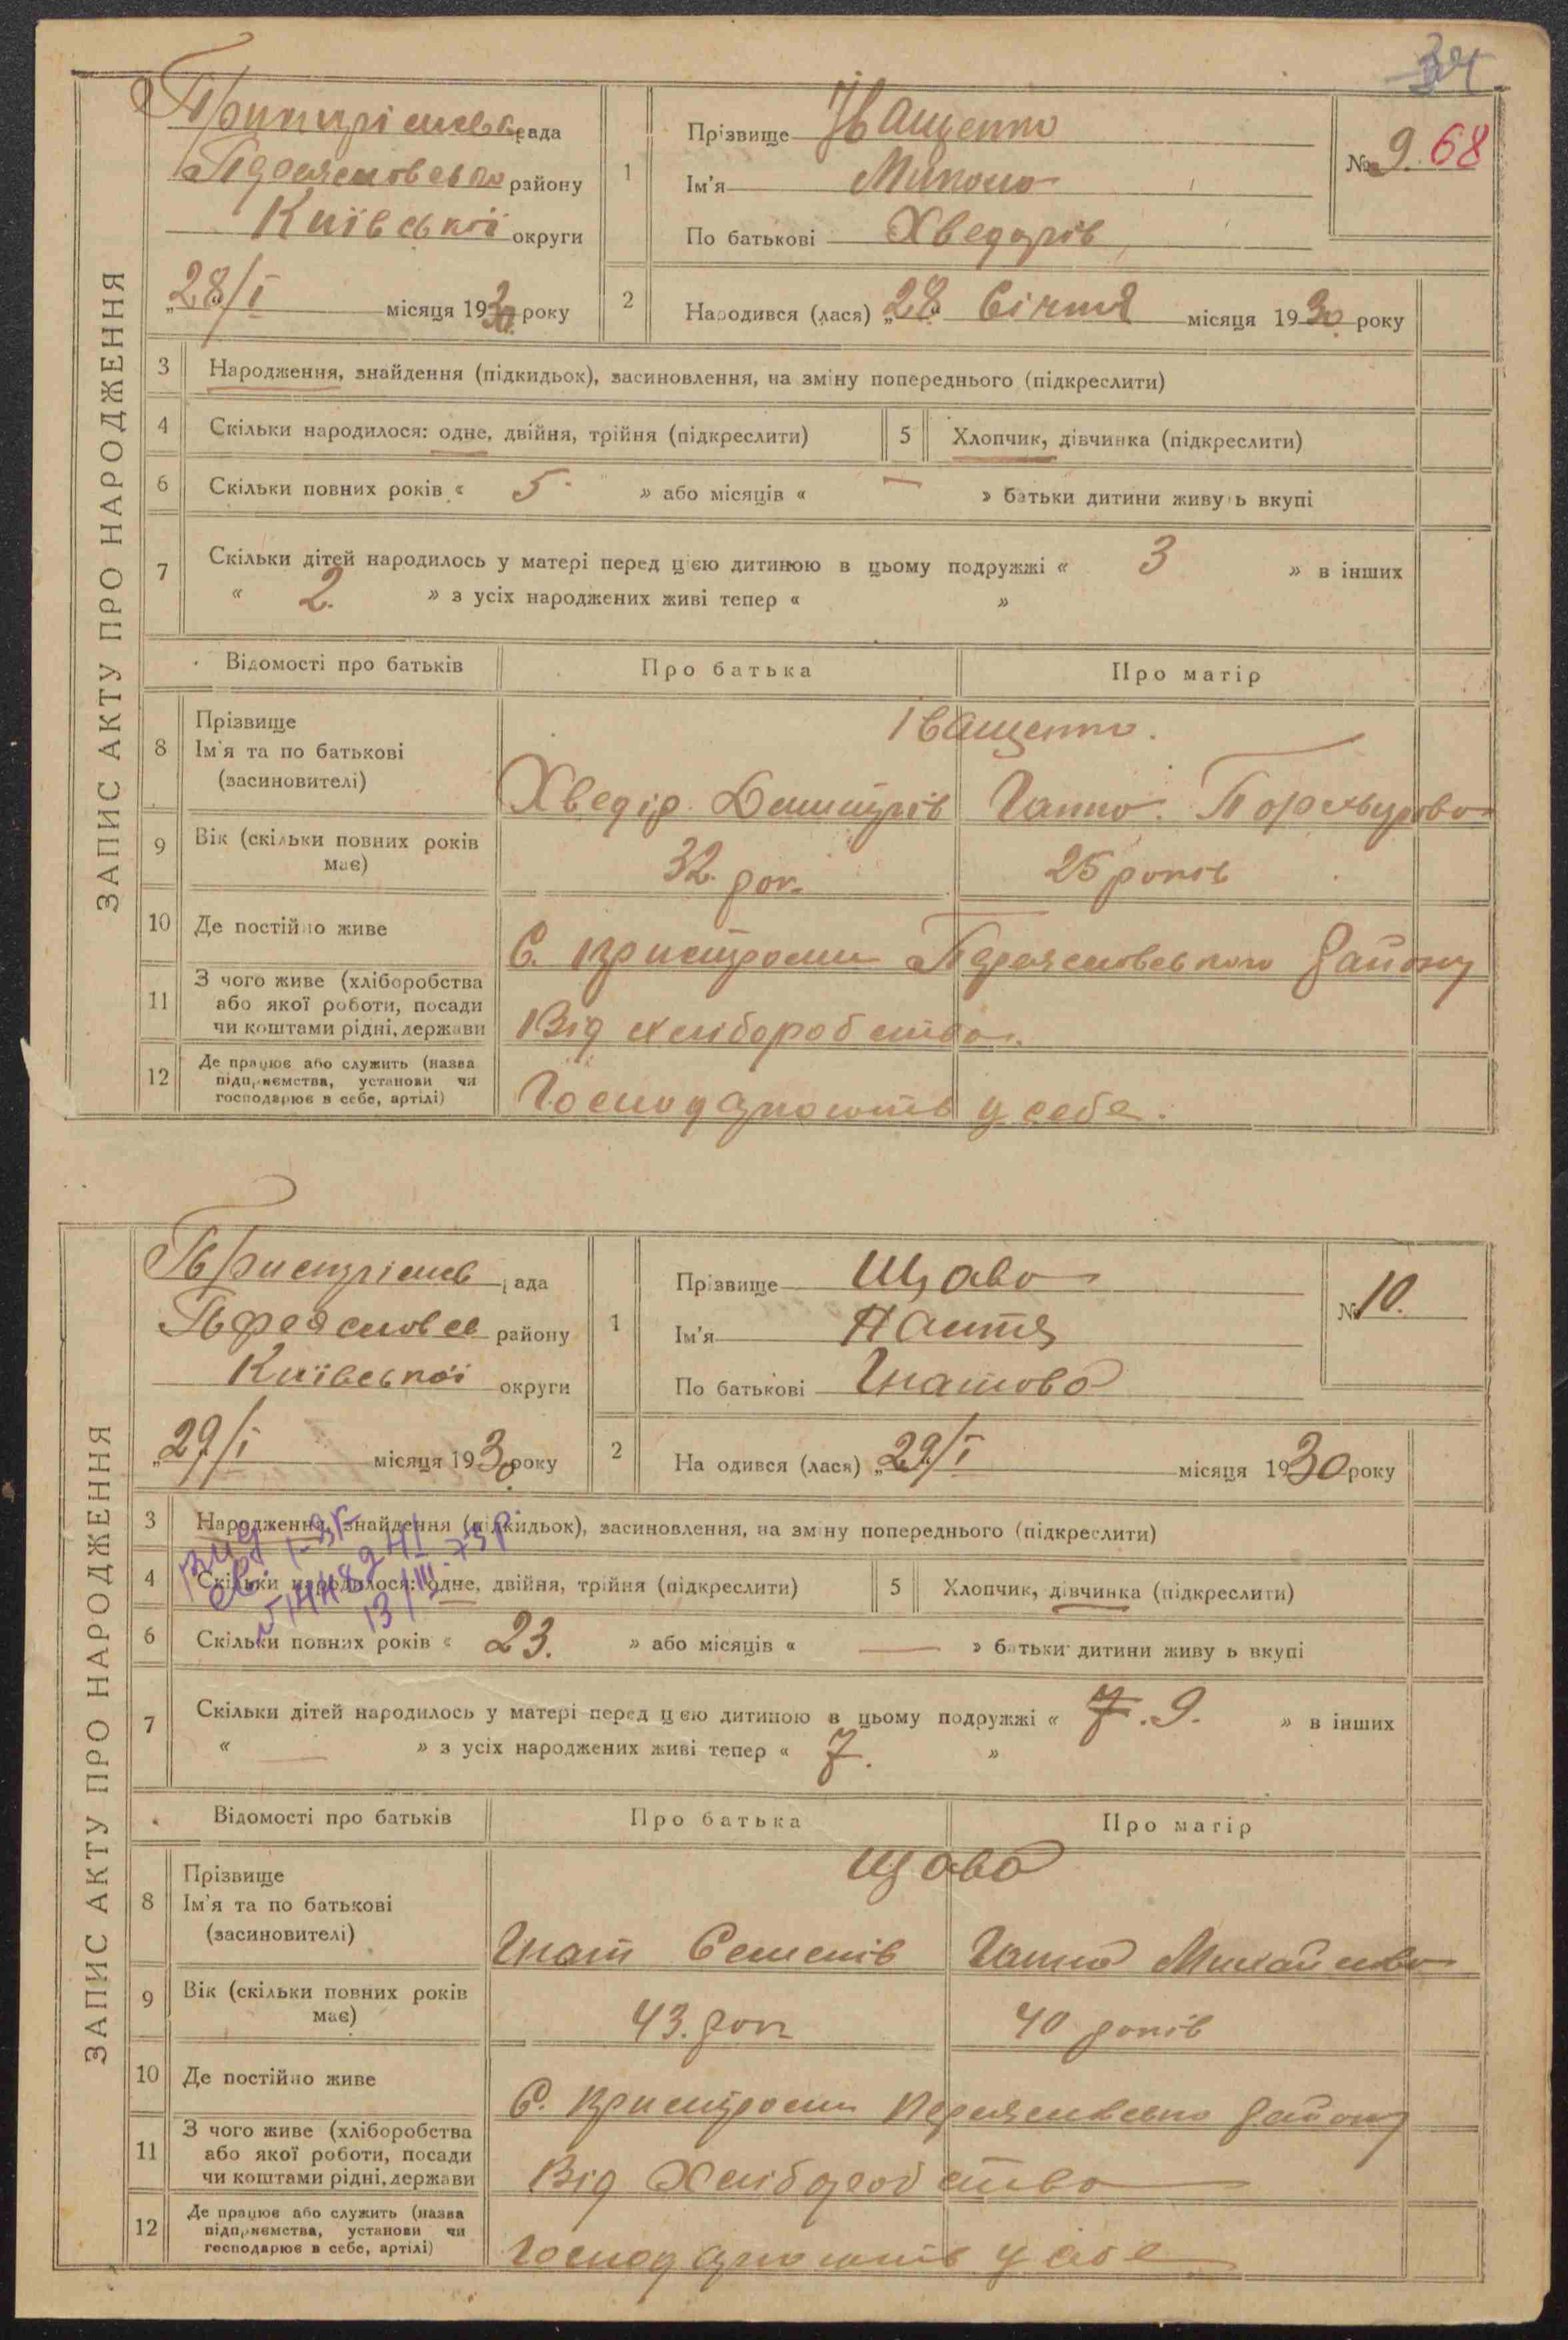 34
ЗАПИС АКТУ ПРО НАРОДЖЕННЯ
рада
району
Київської округи
„28/I місяця 1930 року
1
Прізвище Іващенко
Ім'я Микола
По батькові Хведорів
№ 9. 68
2
Народився (лася) „28 Січня місяця 1930 року
3 Народження, знайдення (підкидьок), засиновлення, на зміну попереднього (підкреслити)
4 Скільки народилося: одне, двійня, трійня (підкреслити) 5 Хлопчик, дівчинка (підкреслити)
6 Скільки повних років « 5 » або місяців « — » батьки дитини живуть вкупі
7 Скільки дітей народилось у матері перед цією дитиною в цьому подружжі « 3 » в інших
« 2. » з усіх народжених живі тепер « »
Відомості про батьків Про батька Про матір
8 Прізвище
Ім'я та по батькові
(засиновителі)
Іващенко.
Хведір Дмитрів Ганна
9 Вік (скільки повних років має) 32. рок. 25 років
10 Де постійно живе С. Пристроми Переясловського Району
11 З чого живе (хліборобства
або якої роботи, посади
чи коштами рідні, держави
Від хліборобства.
12 Де працює або служить (назва
підприємства, установи чи
господарює в себе, артілі)
Господарюють у себе.
ЗАПИС АКТУ ПРО НАРОДЖЕННЯ
Пристрімсь рада
Переясловсь району
Київської округи
„29/I місяця 1930 року
1
Прізвище Щава
Ім'я Настя
По батькові Гнатова
№ 10.
2
На одився (лася) „29/I місяця 1930 року
3 Народження, знайдення (підкидьок), засиновлення, на зміну попереднього (підкреслити)
4 Скільки народилося: одне, двійня, трійня (підкреслити) 5 Хлопчик, дівчинка (підкреслити)
13/III 73р
6 Скільки повних років « 23. » або місяців « — » батьки дитини живу ь вкупі
7 Скільки дітей народилось у матері перед цєю дитиною в цьому подружжі « 7. 9. » в інших
« — » з усіх народжених живі тепер « 7. »
Відомості про батьків Про батька Про матір
8 Прізвище
Ім'я та по батькові
(засиновителі)
Щава
Гнат Семенів Ганна Михайлова
9 Вік (скільки повних років має) 43. рок 40 років
10 Де постійно живе С. Пристроми Переясловсько Району
11 З чого живе (хліборобства
або якої роботи, посади
чи коштами рідні, держави
Від Хліборобства
12 Де працює або служить (назва
підприємства, установи чи
господарює в себе, артілі)
Господарюють у себе